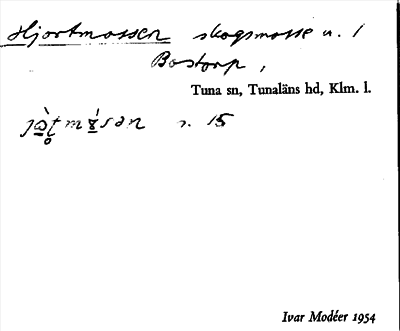 Hjortmossen skogsmosse u. 1
Bostorp,
Tuna sn, Tunaläns hd, Klm. l.
s. 15
Ivar Modéer 1954